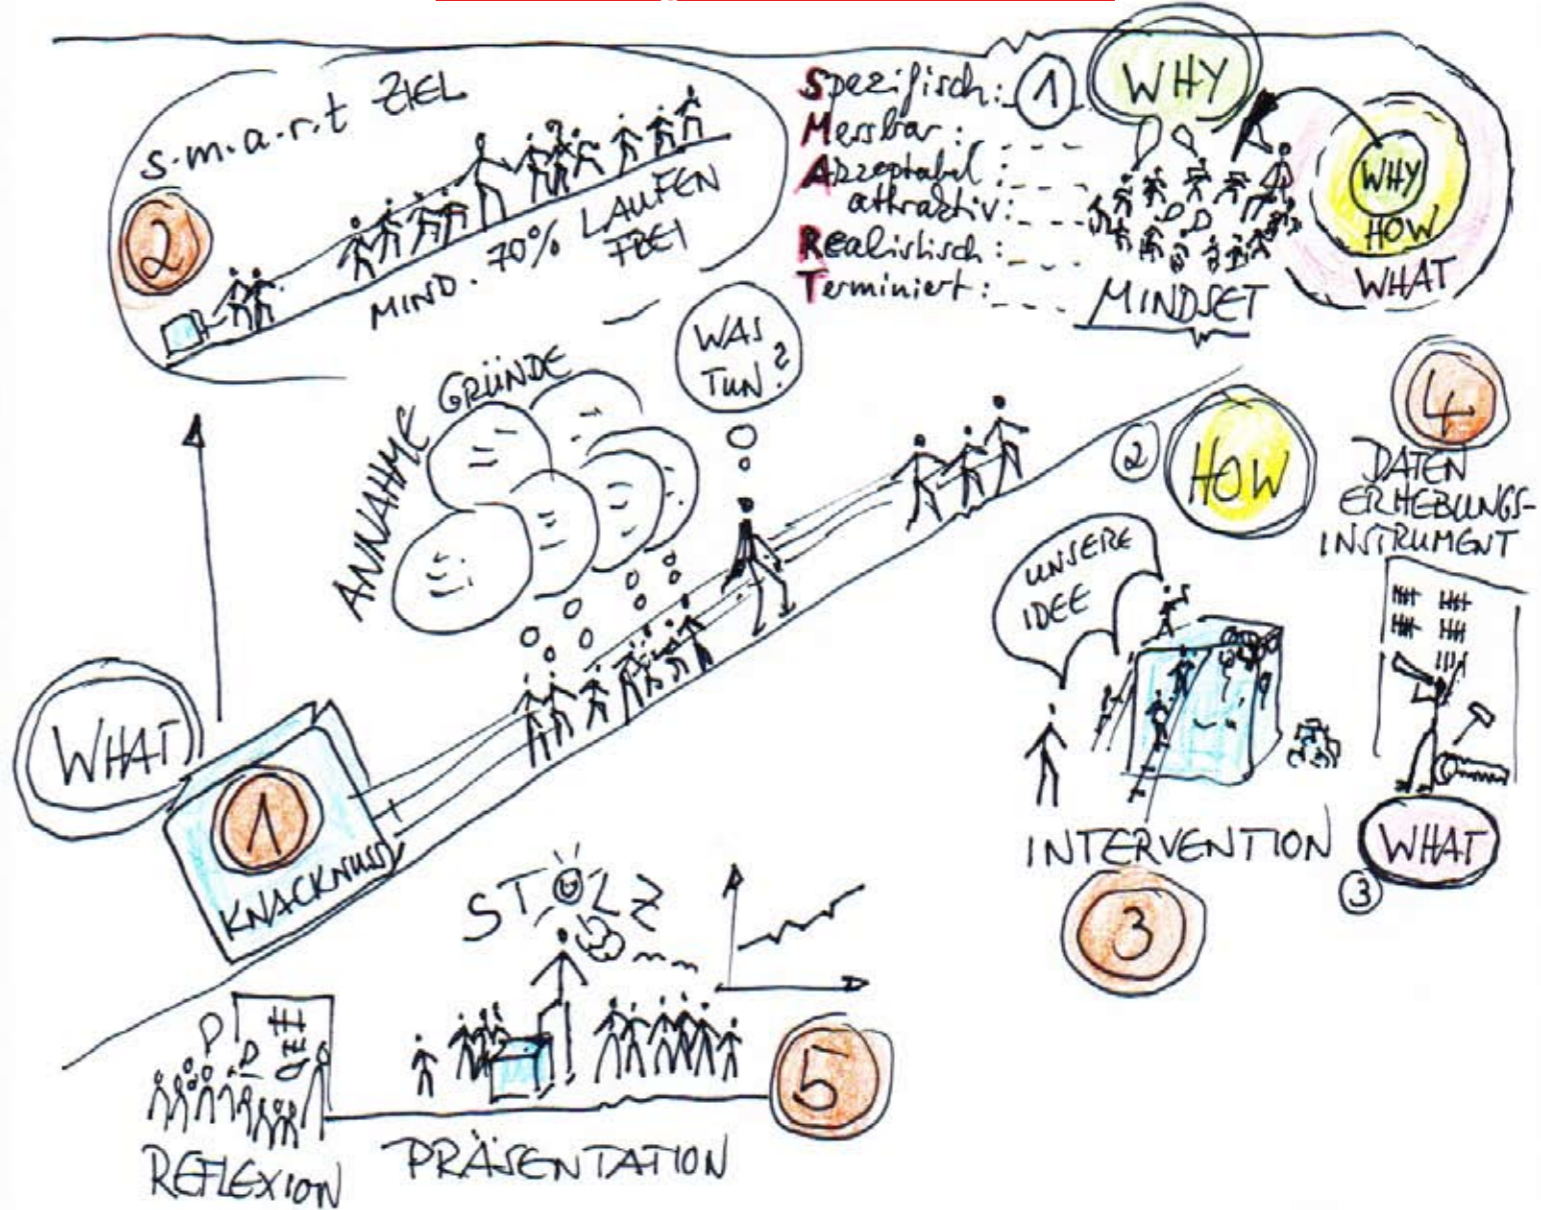 s.m.a.r.t ZIEL
2
MIND. 70% LAUFEN
FREI
Spezifisch:
Messbar:
Akzeptabel:
attraktiv:
Realistisch:
Terminiert:
1
WHY
MINDSET
WHY
HOW
WHAT
ANNAHME GRÜNDE
WAS
TUN?
2
HOW
4
DATEN
ERHEBUNGS-
INSTRUMENT
UNSERE
IDEE
WHAT
1
KNACKNUSS
INTERVENTION
3
WHAT
3
STOLZ
5
REFLEXION
PRÄSENTATION